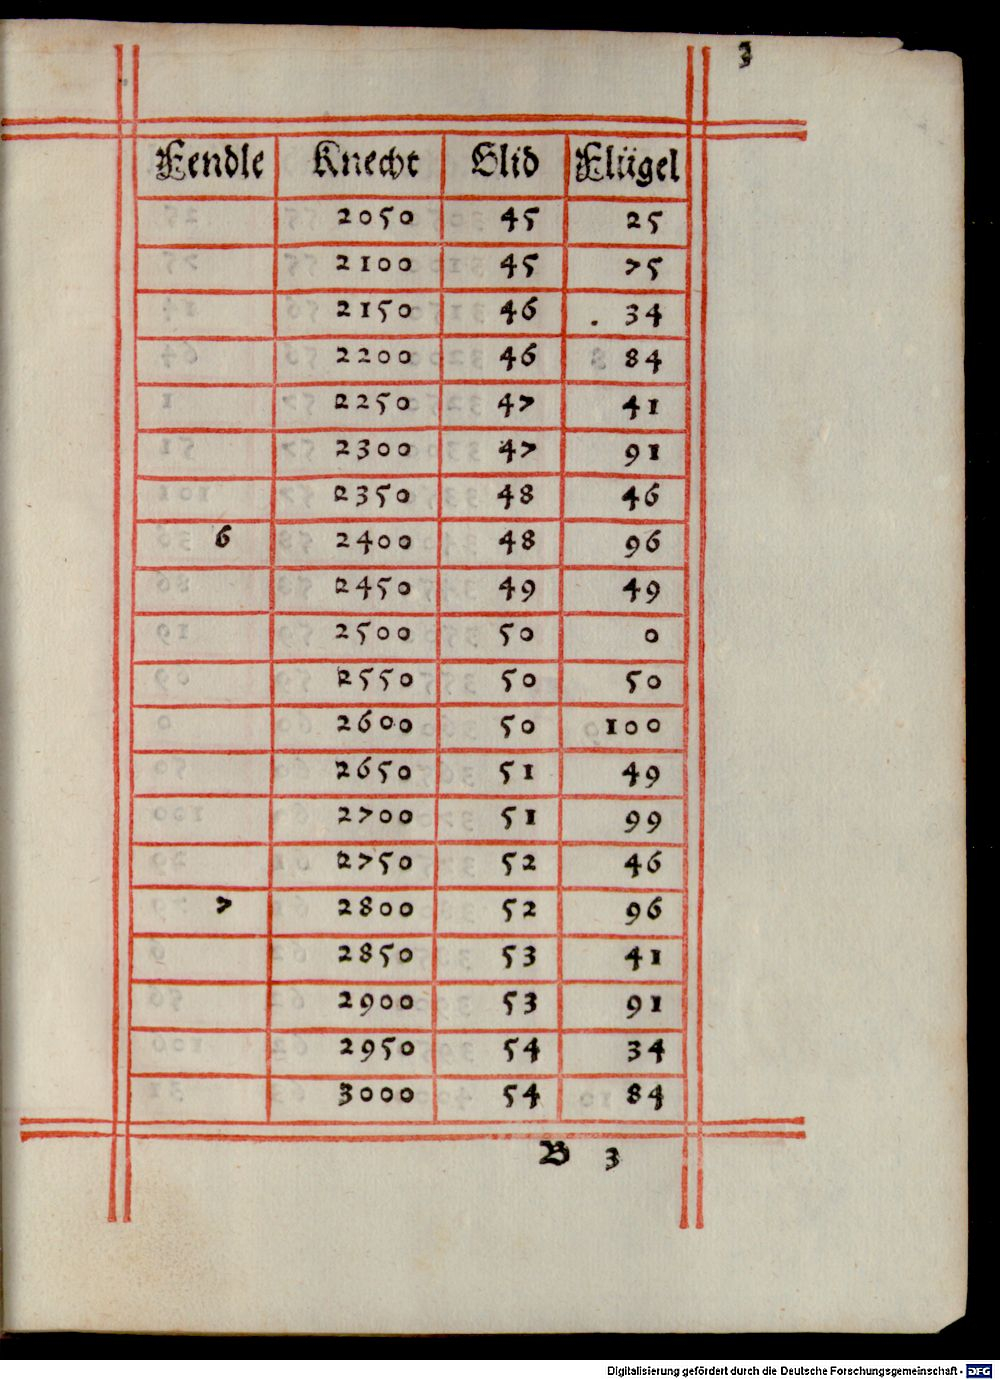 3
Fendle Knecht Glid Flügel
2050 45 25
2100 45 75
2150 46 34
2200 46 84
2250 47 41
2300 47 91
2350 48 46
6 2400 48 96
2450 49 49
2500 50 0
2550 50 50
2600 50 100
2650 51 49
2700 51 99
2750 52 46
7 2800 52 96
2850 53 41
2900 53 91
2950 54 34
3000 54 84
B 3
Digitalisierung gefördert durch die Deutsche Forschungsgemeinschaft - DFG